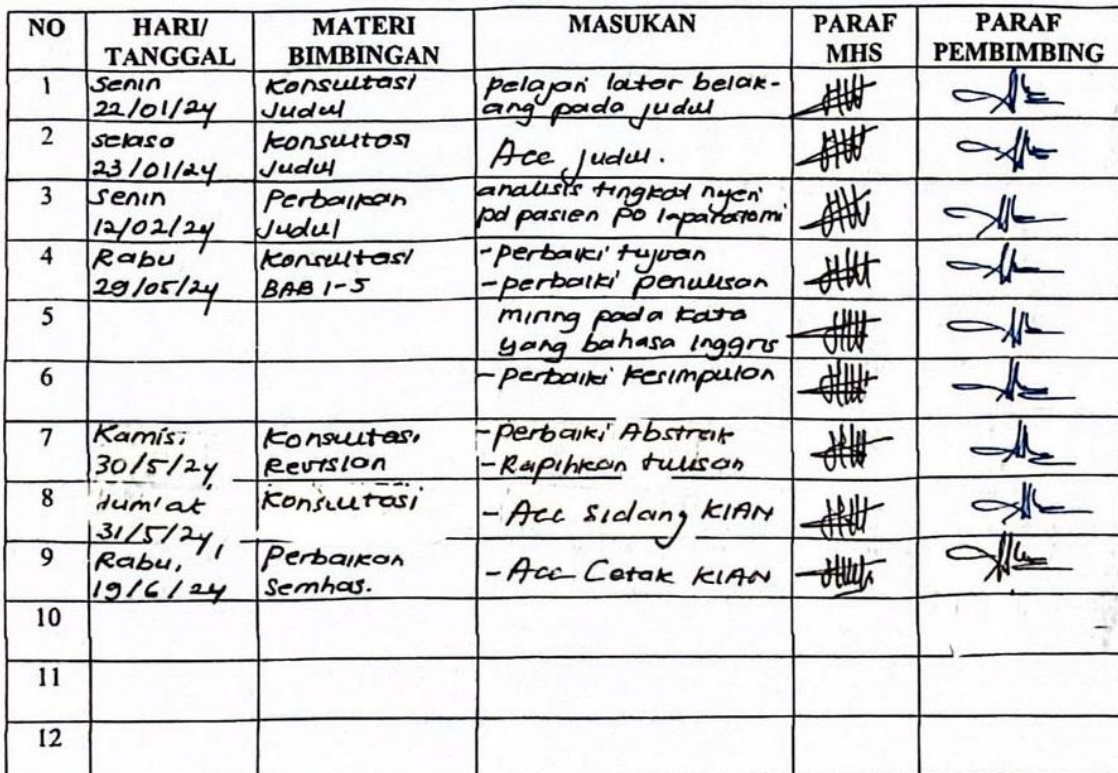 NO HARI/ TANGGAL MATERI BIMBINGAN MASUKAN PARAF MHS PARAF PEMBIMBING
1 Senin 22/01/24 Konsultasi Judul pelajari latar belak-ang pada judul
2 selasa 23/01/24 konsultasi Judul Acc judul.
3 Senin 12/02/24 Perbaikan Judul analisis tingkat nyeri pd pasien po laparatomi
4 Rabu 29/05/24 Konsultasi BAB 1-5 -perbaiki tujuan -perbaiki penulisan
5 miring pada kata yang bahasa inggris
6 -perbaiki kesimpulan
7 Kamis, 30/5/24 Konsultasi Revision -perbaiki Abstrak -Rapihkan tulisan
8 Jum'at 31/5/24, Konsultasi -Acc Sidang KIAN
9 Rabu, 19/6/24 perbaikan Semhas. -Acc Cetak KIAN
10
11
12